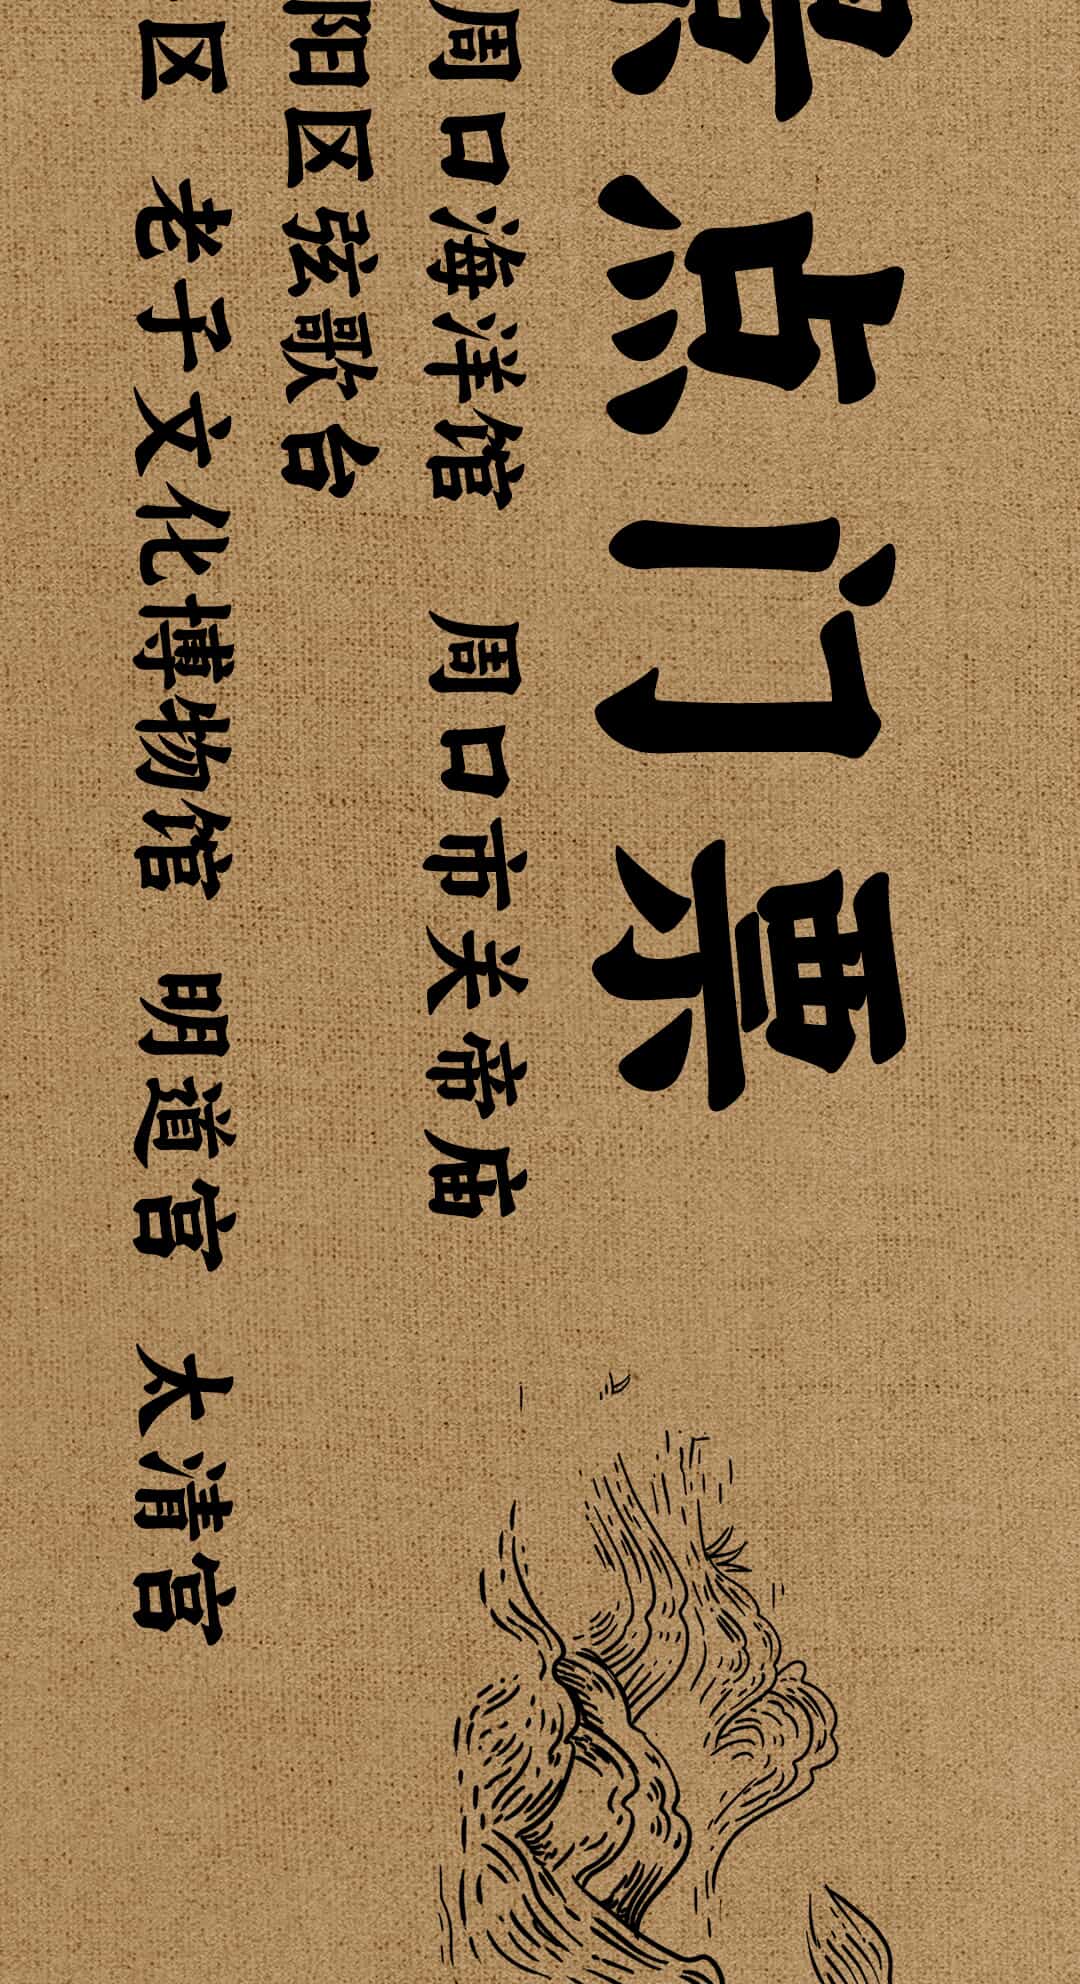 点门票
周口海洋馆 周口市关帝庙
阳区弦歌台
区 老子文化博物馆 明道宫 太清宫